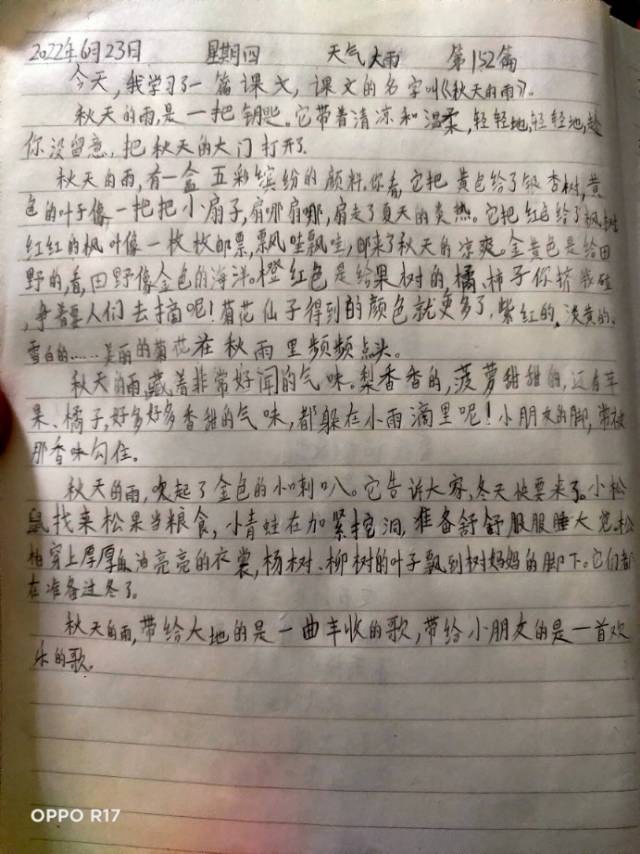 2022年6月23日 星期四 天气大雨 第152篇
今天,我学习了一篇课文,课文的名字叫《秋天的雨》。
秋天的雨,是一把钥匙。它带着清凉和温柔,轻轻地,轻轻地,趁
你没留意,把秋天的大门打开了。
秋天的雨,有一盒五彩缤纷的颜料。你看,它把黄色给了银杏树,黄
色的叶子像一把把小扇子,扇哪扇哪,扇走了夏天的炎热。它把红色给了枫树
红红的枫叶像一枚枚邮票,飘哇飘哇,邮来了秋天的凉爽。金黄色是给田
野的,看,田野像金色的海洋。橙红色是给果树的,橘、柿子你挤我碰
,争着要人们去摘呢!菊花仙子得到的颜色就更多了,紫红的、淡黄的、
雪白的……美丽的菊花在秋雨里频频点头。
秋天的雨,藏着非常好闻的气味。梨香香的,菠萝甜甜的,还有苹
果、橘子,好多好多香甜的气味,都躲在小雨滴里呢!小朋友的脚,常被
那香味勾住。
秋天的雨,吹起了金色的小喇叭。它告诉大家,冬天快要来了。小松
鼠找来松果当粮食,小青蛙在加紧挖洞,准备舒舒服服睡大觉。松
柏穿上厚厚的、油亮亮的衣裳,杨树、柳树的叶子飘到树妈妈的脚下。它们都
在准备过冬了。
秋天的雨,带给大地的是一曲丰收的歌,带给小朋友的是一首欢
乐的歌。
OPPO R17